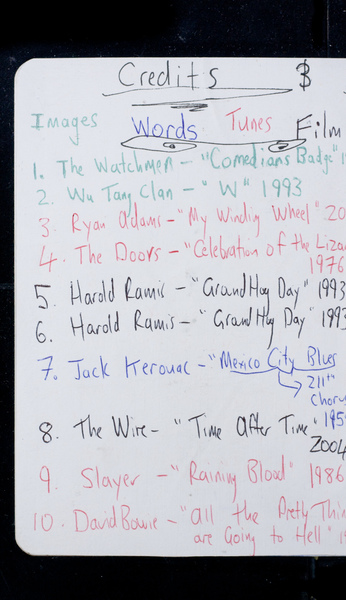 Credits $
Images Words Tunes Film
1. The Watchmen - "Comedians Badge"
2. Wu Tang Clan - "W" 1993
3. Ryan Adams - "My Winding Wheel" 20
4. The Doors - "Celebration of the Lizar
1976
5. Harold Ramis - "GrandHog Day" 1993
6. Harold Ramis - "GrandHog Day" 1993
7. Jack Kerouac - "Mexico City Blues
211th
Choru
195
8. The Wire - "Time After Time"
2004
9. Slayer - "Raining Blood" 1986
10. David Bowie - "all the Pretty Thin
are Going to Hell"